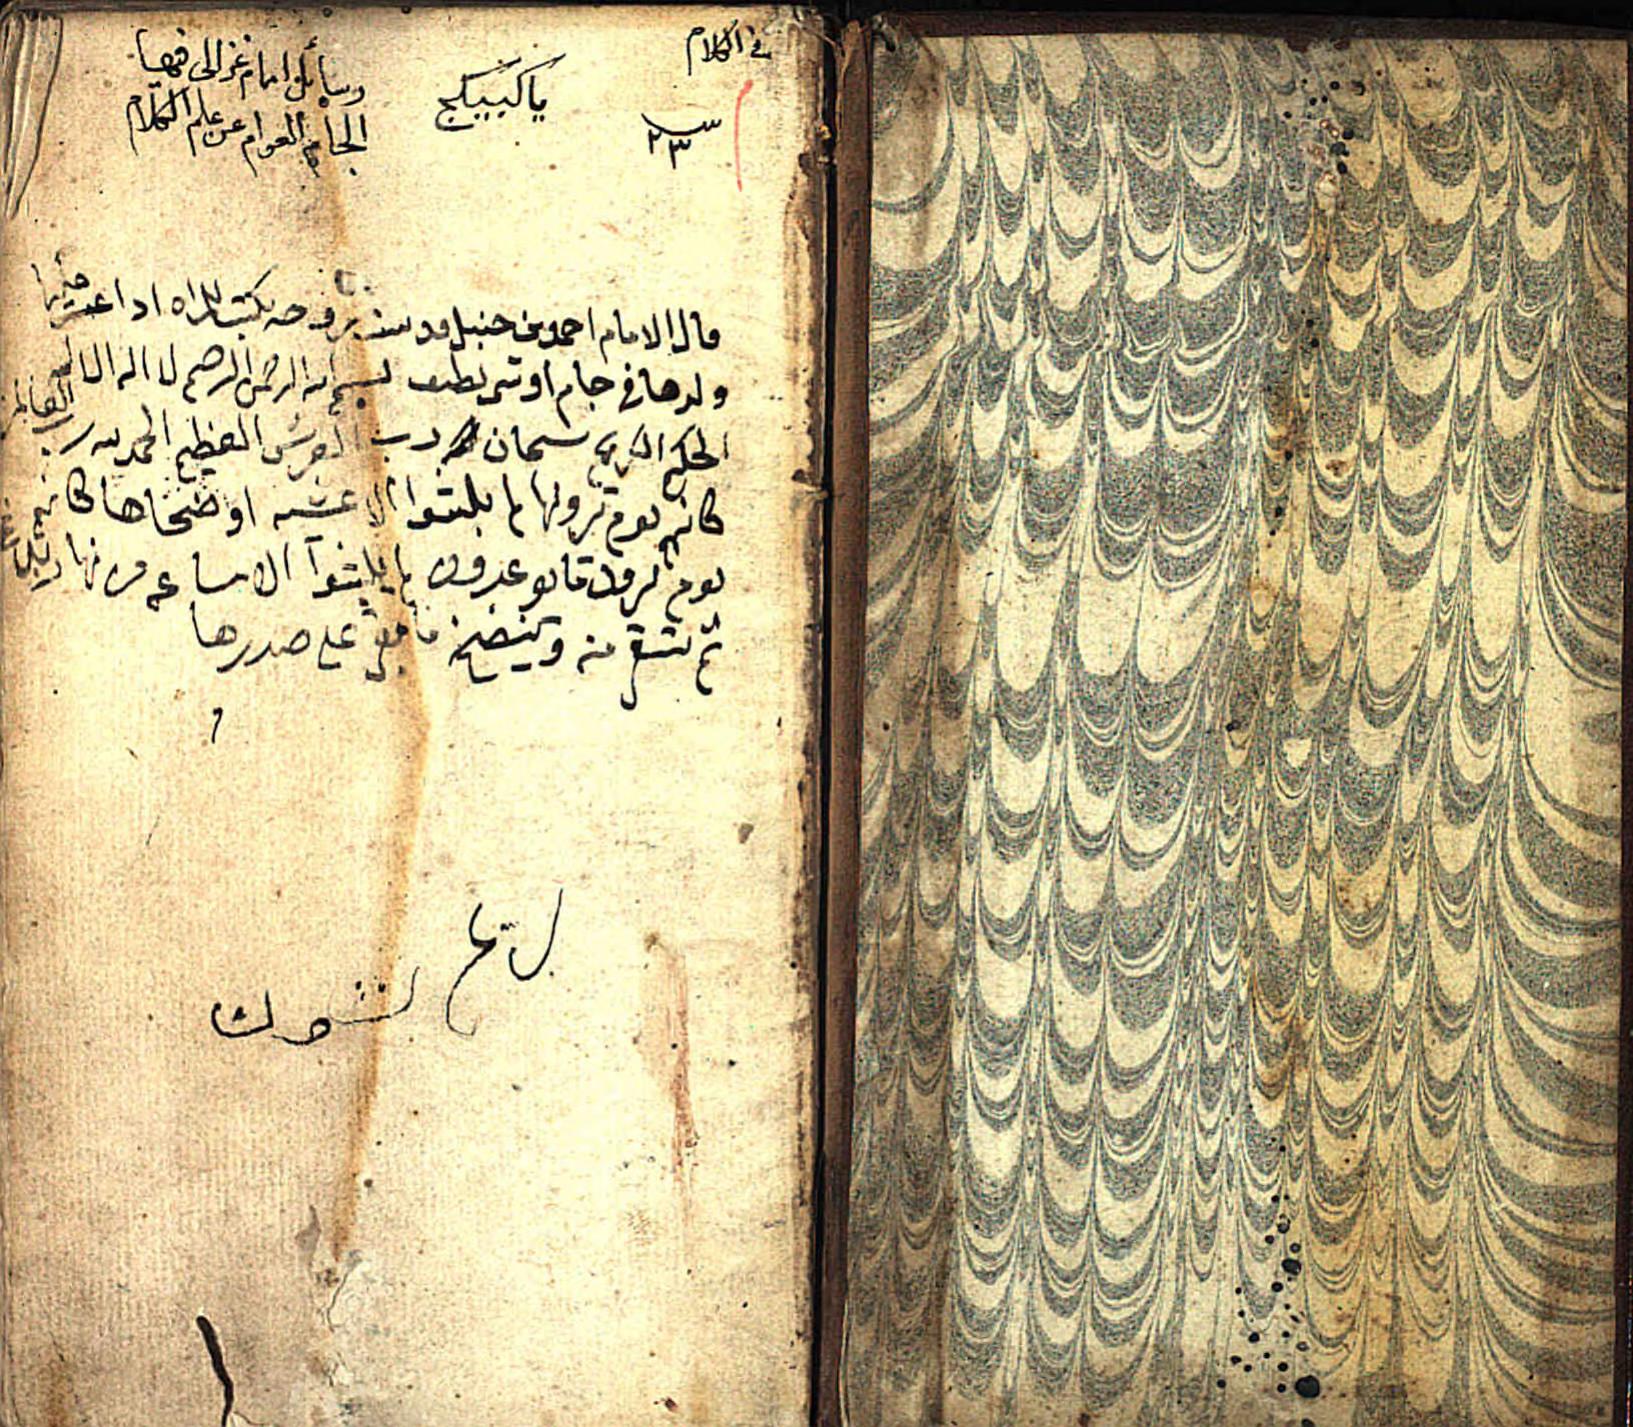 في الكلام
٢٣
ياكبيكج
رسائل امام غزالى فيها
الجام العوام عن علم الكلام
قال الامام احمد بن حنبل يكتب للمراه اذا عسر عليها
ولدها في جام او شي نظيف بسم الله الرحمن الرحيم لا اله الا الله
الحليم الكريم سبحان الله رب العرش العظيم الحمد لله رب العالمين
كانهم يوم يرونها لم يلبثوا الا عشيه او ضحاها كانهم
يوم يرون ما يوعدون لم يلبثوا الا ساعه من نهار بلاغ
ثم تسقى منه وينضح ما بقي على صدرها